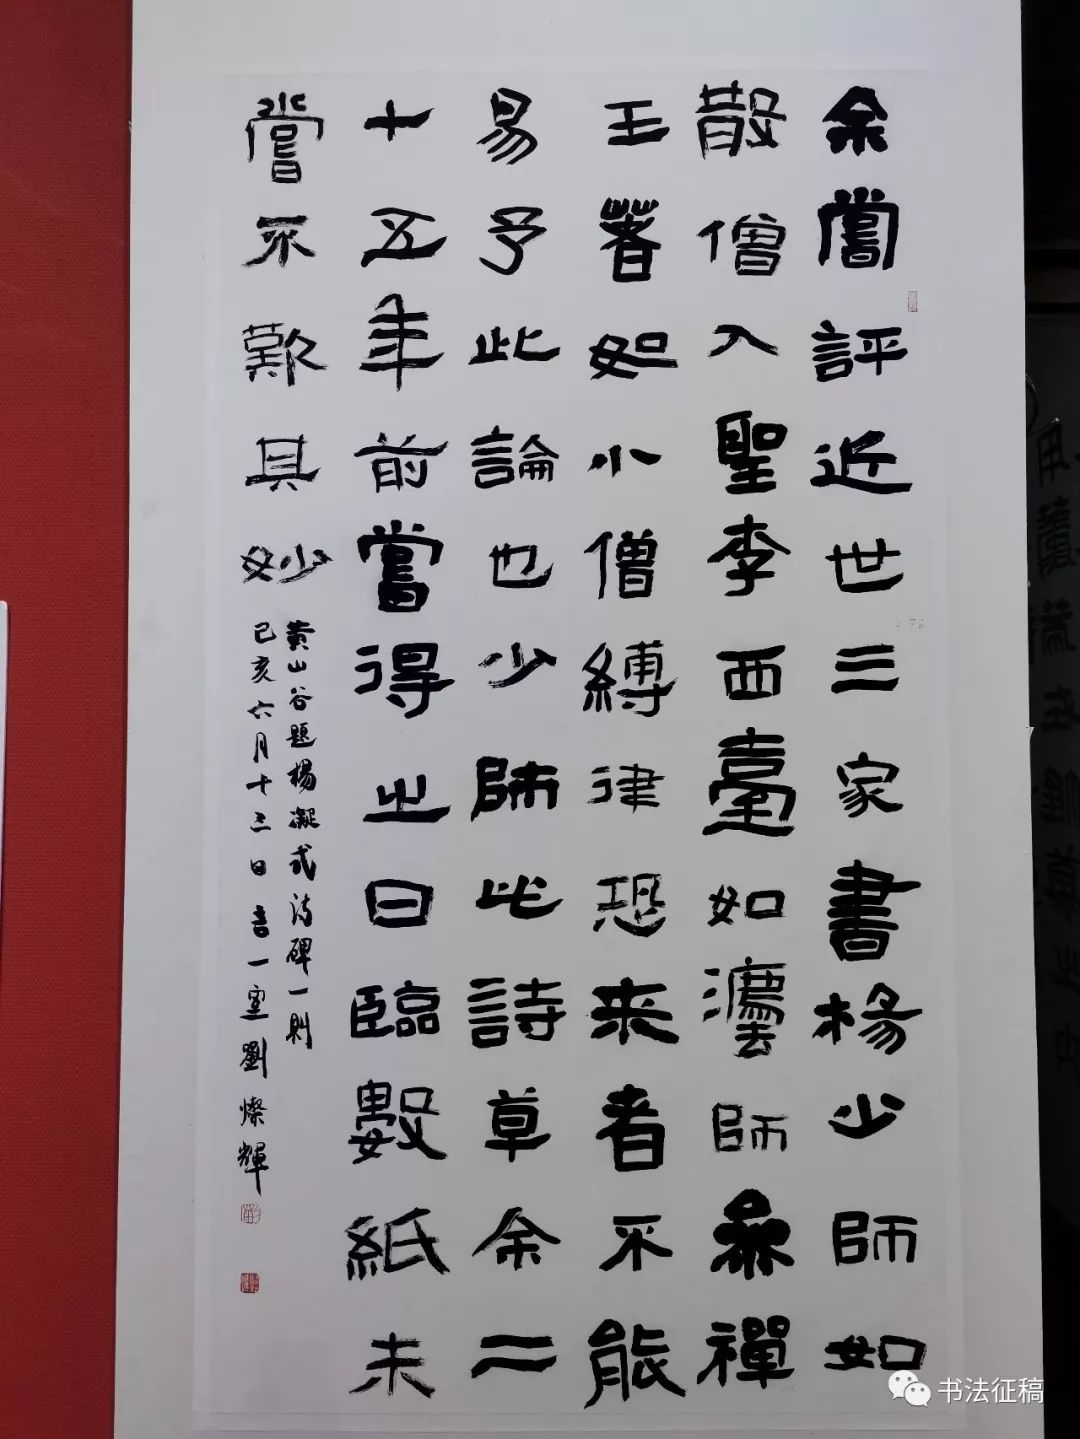 余嘗評近世三家書楊少師如
散僧入聖李西臺如法師參禪
王著如小僧縛律恐来者不能
易予此論也少師此詩草余二
十五年前嘗得之曰臨數紙未
嘗不歎其妙
黄山谷題楊凝式詩碑一則
己亥六月十三日吉一室劉燦輝
书法征稿